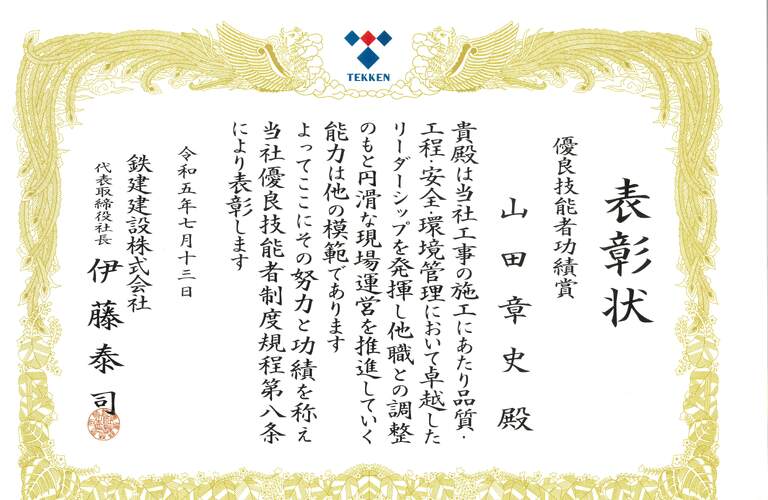 TEKKEN
表彰状
優良技能者功績賞
山田章史殿
貴殿は当社工事の施工にあたり品質・
工程・安全・環境管理において卓越した
リーダーシップを発揮し他職との調整
のもと円滑な現場運営を推進していく
能力は他の模範であります
よってここにその努力と功績を称え
当社優良技能者制度規程第八条
により表彰します
令和五年七月十三日
鉄建建設株式会社
代表取締役社長 伊藤泰司